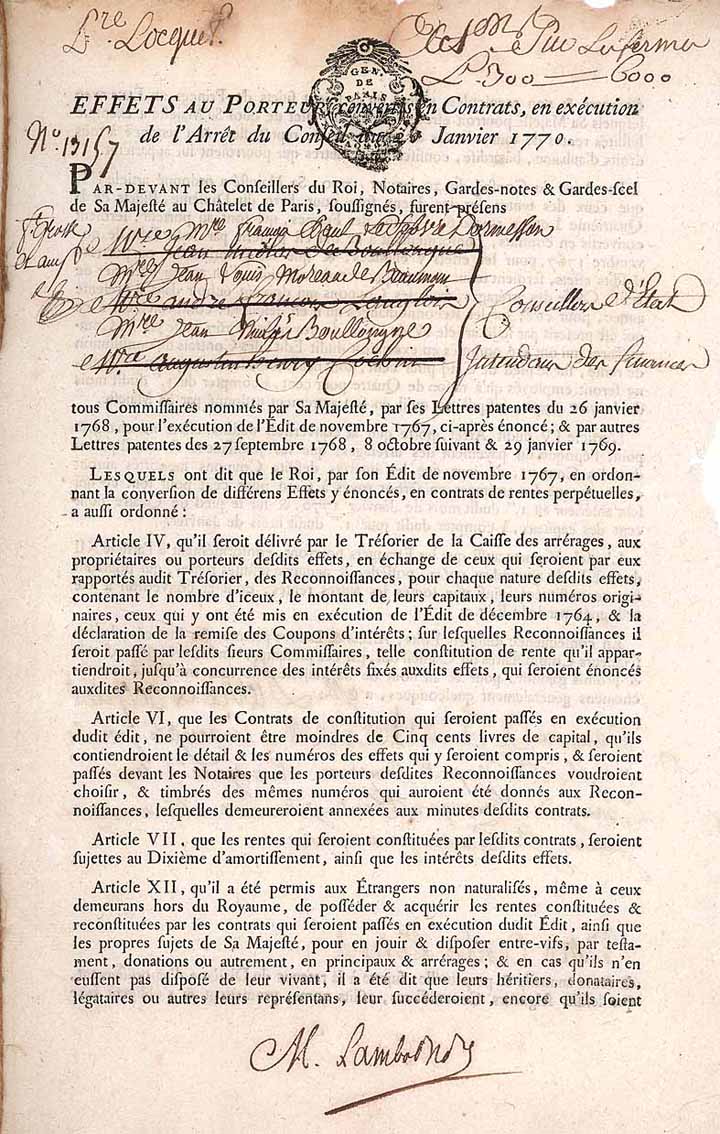 Locquet
300 — 6000
GEN.
DE
PARIS
EFFETS AU PORTEUR convertis en Contrats, en exécution
de l'Arrêt du Conseil du Janvier 1770.
N.º 13157
PAR-DEVANT les Conseillers du Roi, Notaires, Gardes-notes & Gardes-scel
de Sa Majesté au Châtelet de Paris, soussignés, furent présens
Mre François Dormesson
Mre Jean de Boullongne
Mre Jean Louis Moreau de Beaumont
Mre andré françois Langlois
Conseillers d'Etat
Mre Jean Boullongne
Mre augustin henry Cochin
Intendans des finances
tous Commissaires nommés par Sa Majesté, par ses Lettres patentes du 26 janvier
1768, pour l'exécution de l'Édit de novembre 1767, ci-après énoncé; & par autres
Lettres patentes des 27 septembre 1768, 8 octobre suivant & 29 janvier 1769.
LESQUELS ont dit que le Roi, par son Édit de novembre 1767, en ordon-
nant la conversion de différens Effets y énoncés, en contrats de rentes perpétuelles,
a aussi ordonné :
Article IV, qu'il seroit délivré par le Trésorier de la Caisse des arrérages, aux
propriétaires ou porteurs desdits effets, en échange de ceux qui seroient par eux
rapportés audit Trésorier, des Reconnoissances, pour chaque nature desdits effets,
contenant le nombre d'iceux, le montant de leurs capitaux, leurs numéros origi-
naires, ceux qui y ont été mis en exécution de l'Édit de décembre 1764, & la
déclaration de la remise des Coupons d'intérêts; sur lesquelles Reconnoissances il
seroit passé par lesdits sieurs Commissaires, telle constitution de rente qu'il appar-
tiendroit, jusqu'à concurrence des intérêts fixés auxdits effets, qui seroient énoncés
auxdites Reconnoissances.
Article VI, que les Contrats de constitution qui seroient passés en exécution
dudit édit, ne pourroient être moindres de Cinq cents livres de capital, qu'ils
contiendroient le détail & les numéros des effets qui y seroient compris, & seroient
passés devant les Notaires que les porteurs desdites Reconnoissances voudroient
choisir, & timbrés des mêmes numéros qui auroient été donnés aux Recon-
noissances, lesquelles demeureroient annexées aux minutes desdits contrats.
Article VII, que les rentes qui seroient constituées par lesdits contrats, seroient
sujettes au Dixième d'amortissement, ainsi que les intérêts desdits effets.
Article XII, qu'il a été permis aux Étrangers non naturalisés, même à ceux
demeurans hors du Royaume, de posséder & acquérir les rentes constituées &
reconstituées par les contrats qui seroient passés en exécution dudit Édit, ainsi que
les propres sujets de Sa Majesté, pour en jouir & disposer entre-vifs, par testa-
ment, donations ou autrement, en principaux & arrérages; & en cas qu'ils n'en
eussent pas disposé de leur vivant, il a été dit que leurs héritiers, donataires,
légataires ou autres leurs représentans, leur succéderoient, encore qu'ils soient
M.